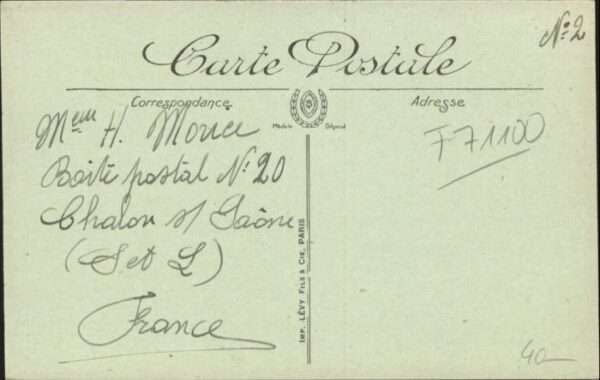 N:2
Carte Postale
Correspondance
Adresse
Modèle Déposé
Meur H. Morice
F71100
Boîte postal N: 20
Chalon s/ Saône
(S et L)
France
IMP. LÉVY FILS & CIE, PARIS
40—